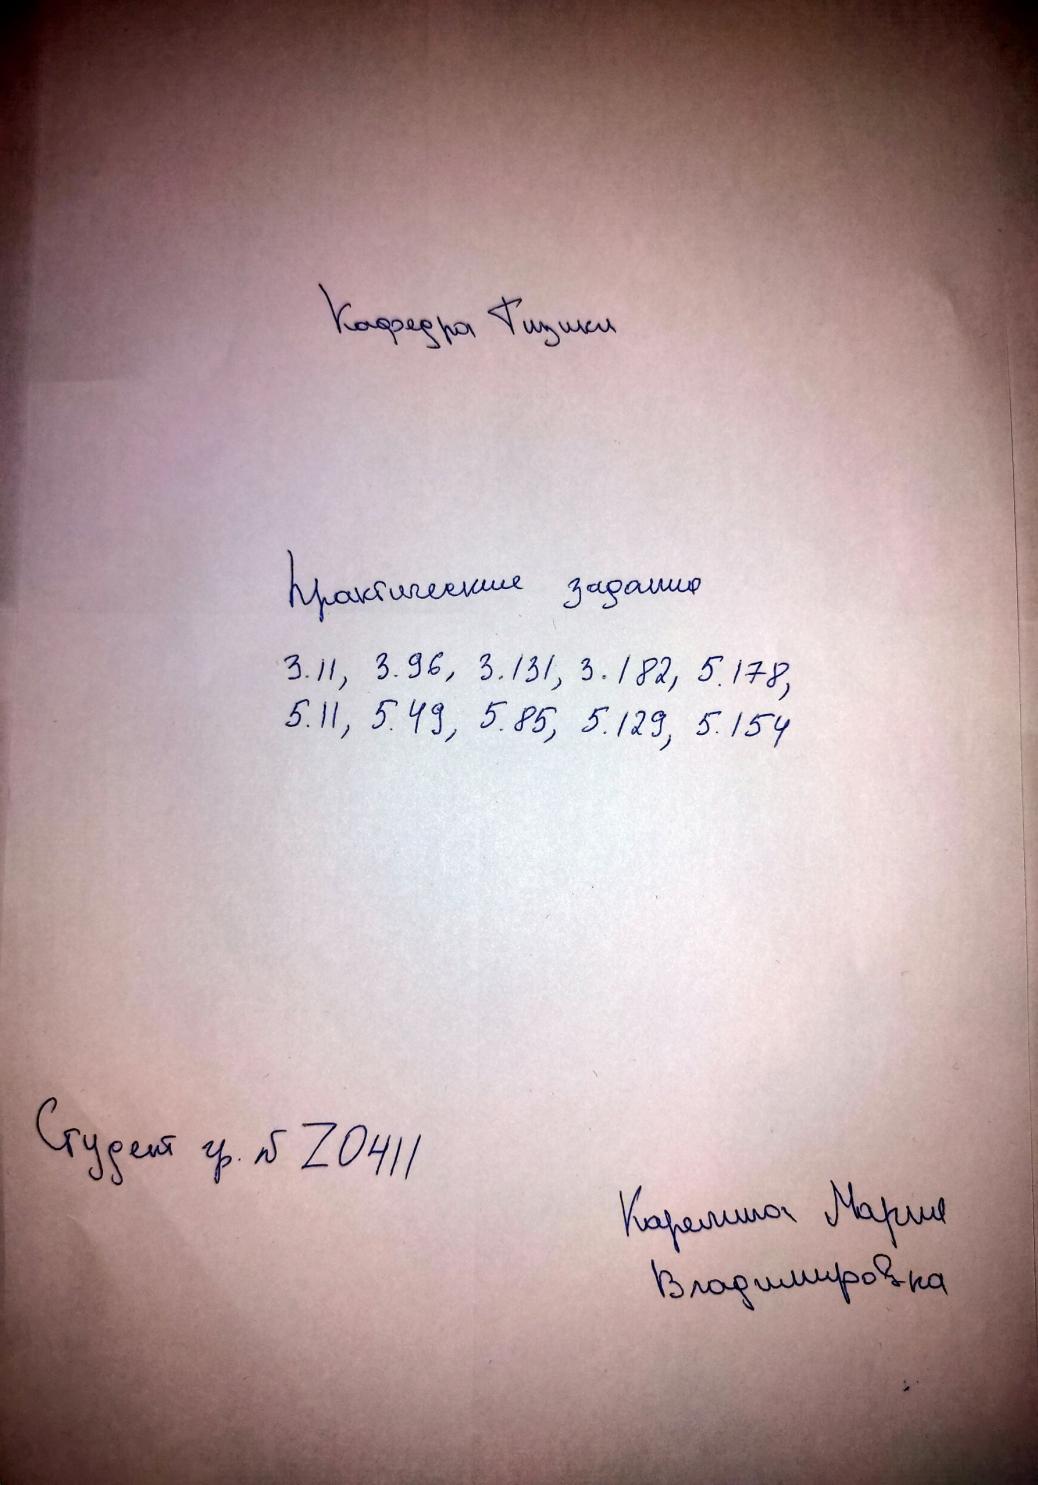 Кафедра Физики
Практические задания
3.11, 3.96, 3.131, 3.182, 5.178,
5.11, 5.49, 5.85, 5.129, 5.154
Студент гр. № Z0411
Карелина Мария
Владимировна